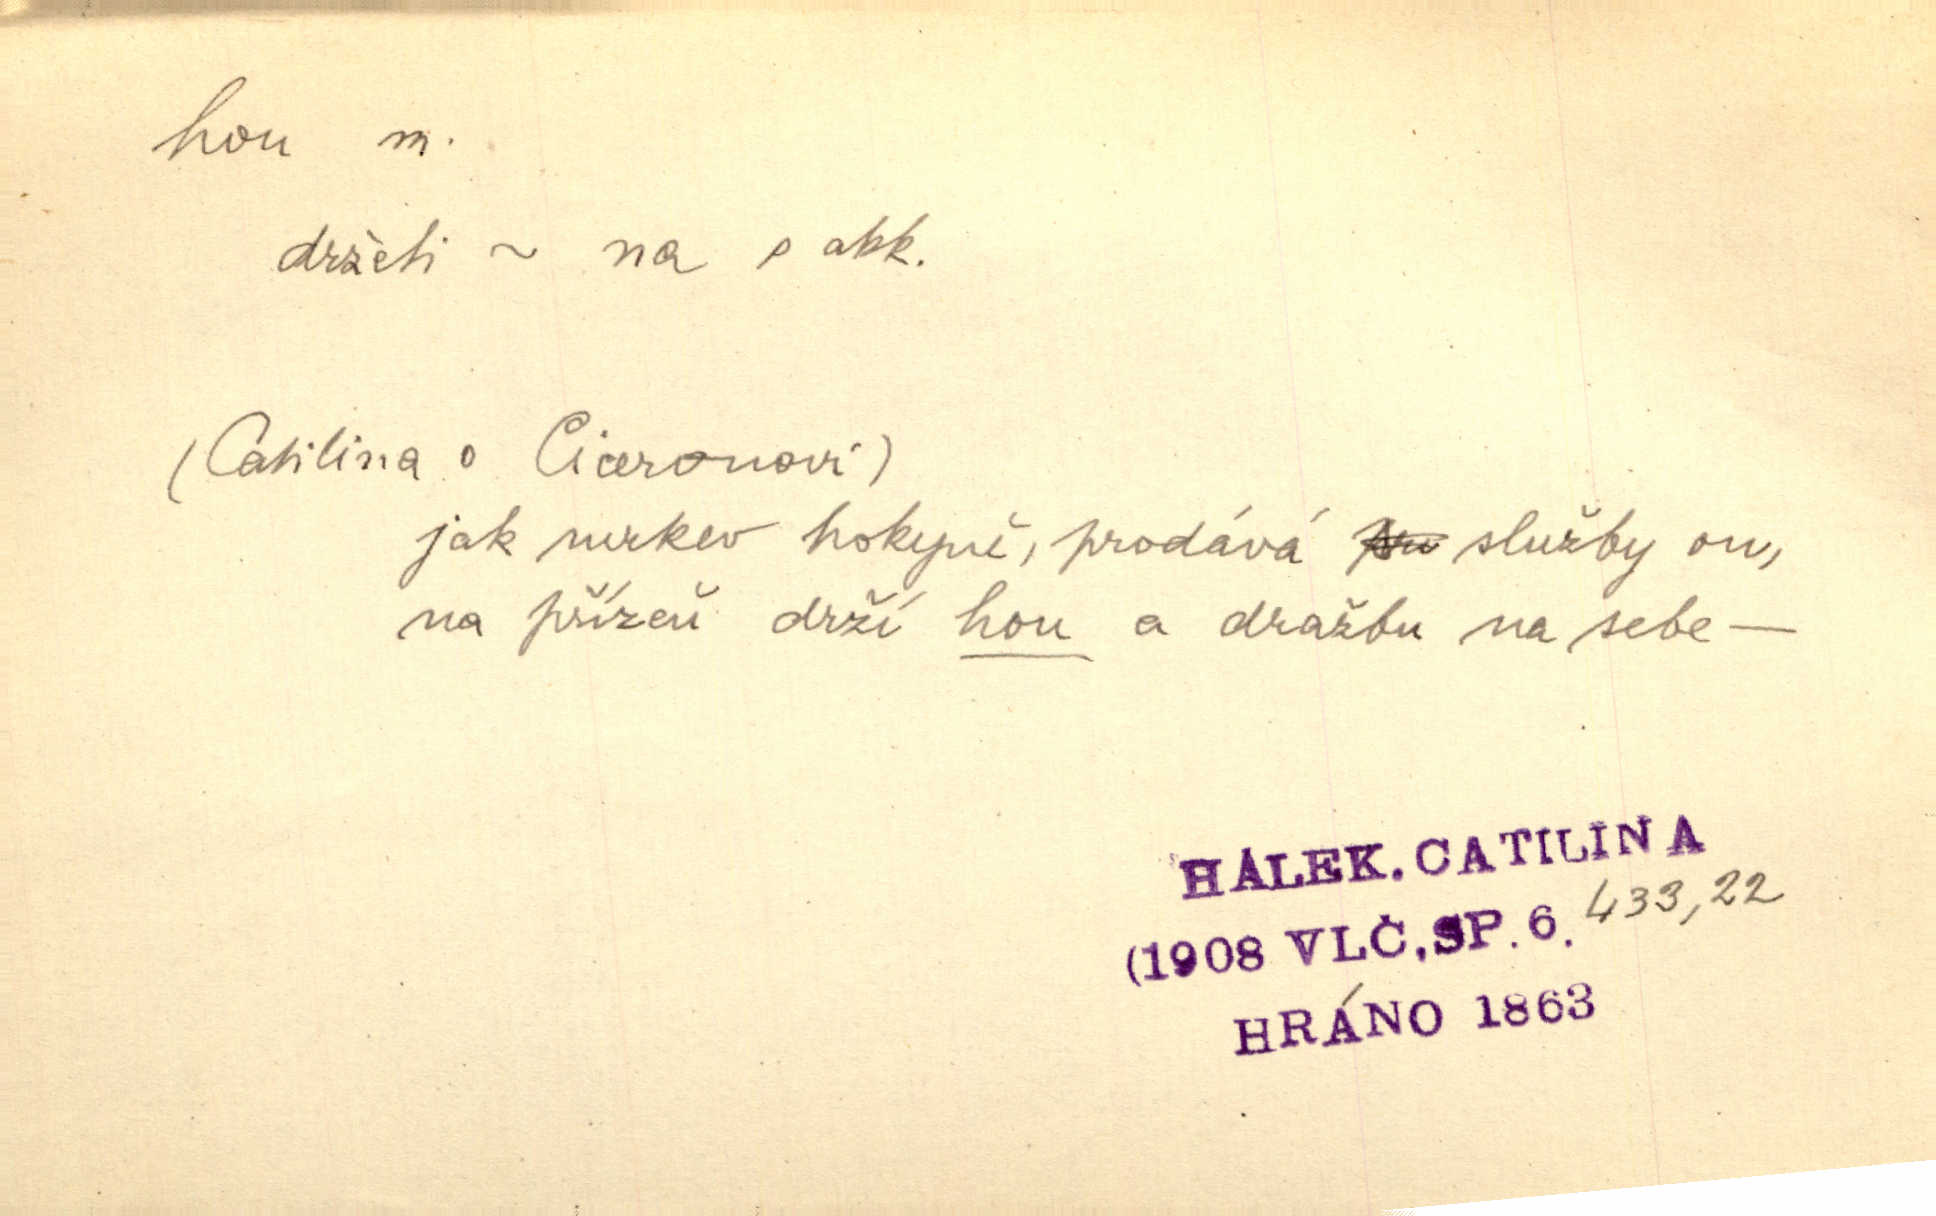 hon m.
držeti ~ na s akk.
(Catilina o Ciceronovi)
jak mrkev hokyně, prodává služby on,
na přízeň drží hon a dražbu na sebe —
HÁLEK. CATILINA
(1908 VLČ, SP. 6. 433,22
HRÁNO 1863